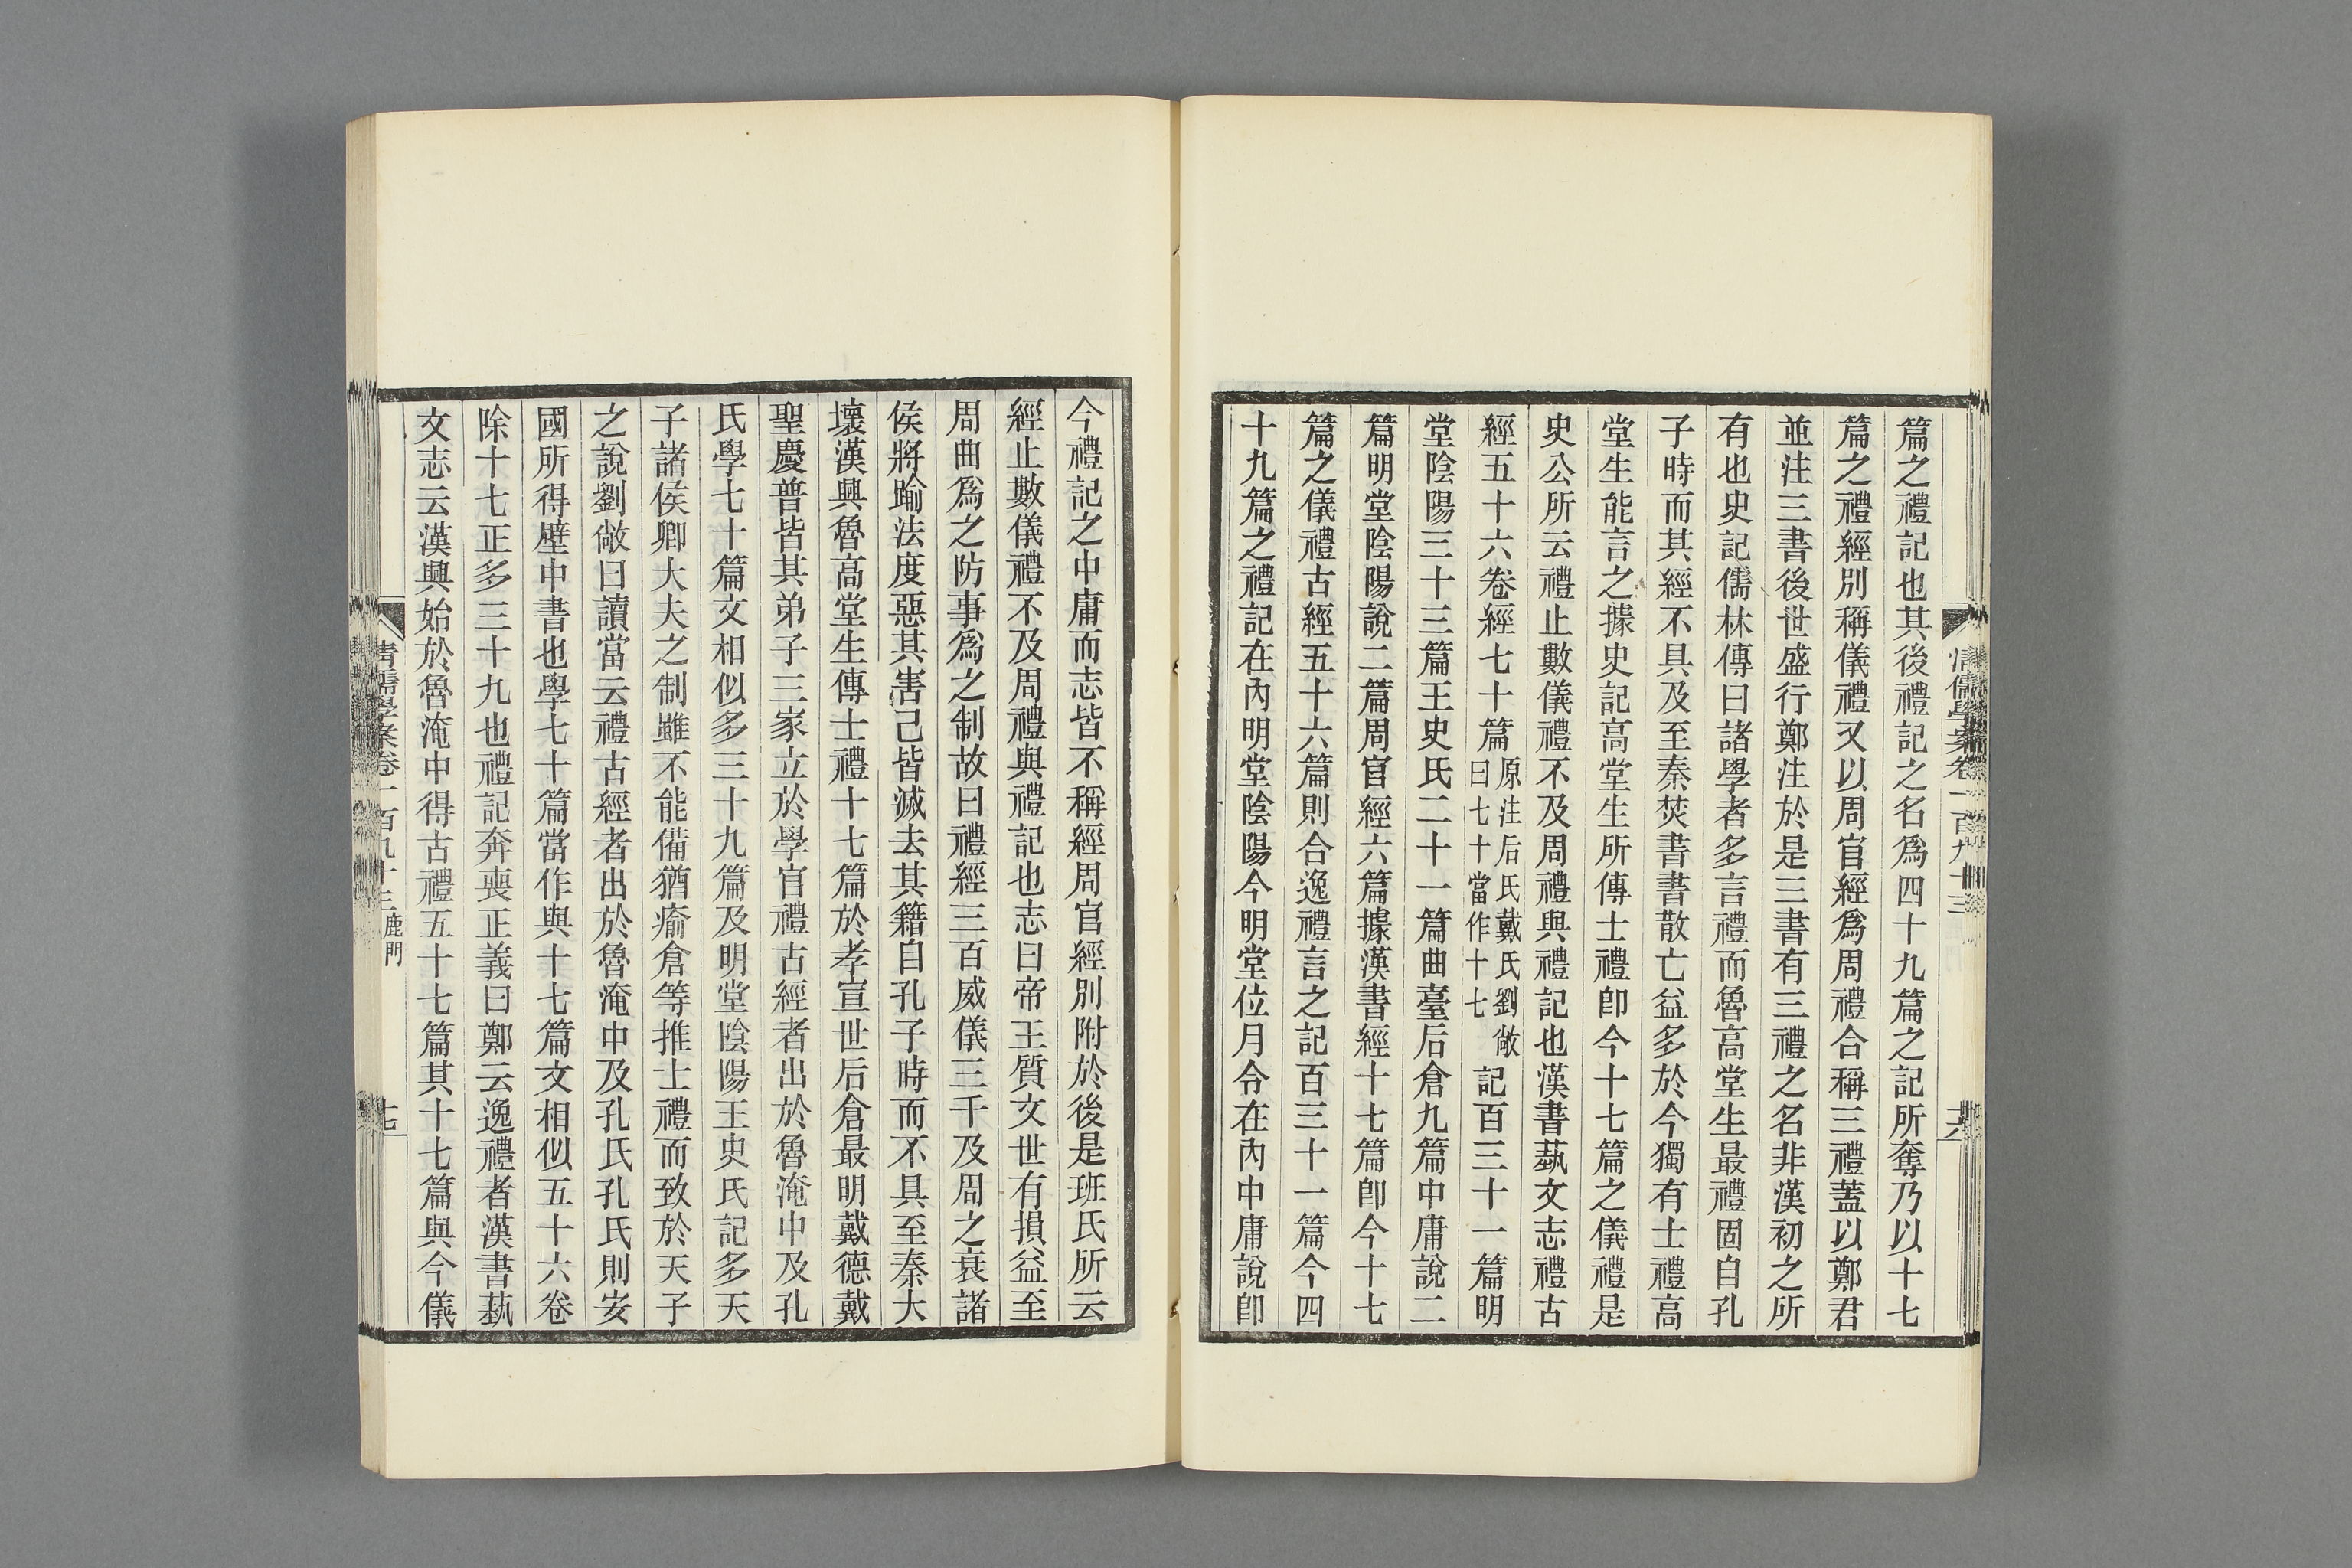 篇之禮記也其後禮記之名爲四十九篇之記所奪乃以十七
篇之禮經別稱儀禮又以周官經爲周禮合稱三禮蓋以鄭君
並注三書後世盛行鄭注於是三書有三禮之名非漢初之所
有也史記儒林傳曰諸學者多言禮而魯高堂生最禮固自孔
子時而其經不具及至秦焚書書散亡益多於今獨有士禮高
堂生能言之據史記高堂生所傳士禮卽今十七篇之儀禮是
史公所云禮止數儀禮不及周禮與禮記也漢書蓺文志禮古
經五十六卷經七十篇原注后氏戴氏劉敞曰七十當作十七記百三十一篇明
堂陰陽三十三篇王史氏二十一篇曲臺后倉九篇中庸說二
篇明堂陰陽說二篇周官經六篇據漢書經十七篇卽今十七
篇之儀禮古經五十六篇則合逸禮言之記百三十一篇今四
十九篇之禮記在內明堂陰陽今明堂位月令在內中庸說卽
清儒學案卷一百九十三
十六
今禮記之中庸而志皆不稱經周官經別附於後是班氏所云
經止數儀禮不及周禮與禮記也志曰帝王質文世有損益至
周曲爲之防事爲之制故曰禮經三百威儀三千及周之衰諸
侯將踰法度惡其害己皆滅去其籍自孔子時而不具至秦大
壞漢興魯高堂生傳士禮十七篇於孝宣世后倉最明戴德戴
聖慶普皆其弟子三家立於學官禮古經者出於魯淹中及孔
氏學七十篇文相似多三十九篇及明堂陰陽王史氏記多天
子諸侯卿大夫之制雖不能備猶瘉倉等推士禮而致於天子
之說劉敞曰讀當云禮古經者出於魯淹中及孔氏孔氏則安
國所得壁中書也學七十篇當作與十七篇文相似五十六卷
除十七正多三十九也禮記奔喪正義曰鄭云逸禮者漢書蓺
文志云漢興始於魯淹中得古禮五十七篇其十七篇與今儀
清儒學案卷一百九十三 鹿門
十七